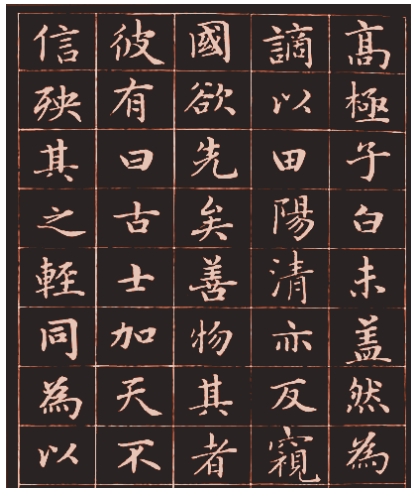 高極子白未盖然為
謫以田陽清亦反窺
國欲先矣善物其者
彼有曰古士加天不
信殃其之輕同為以